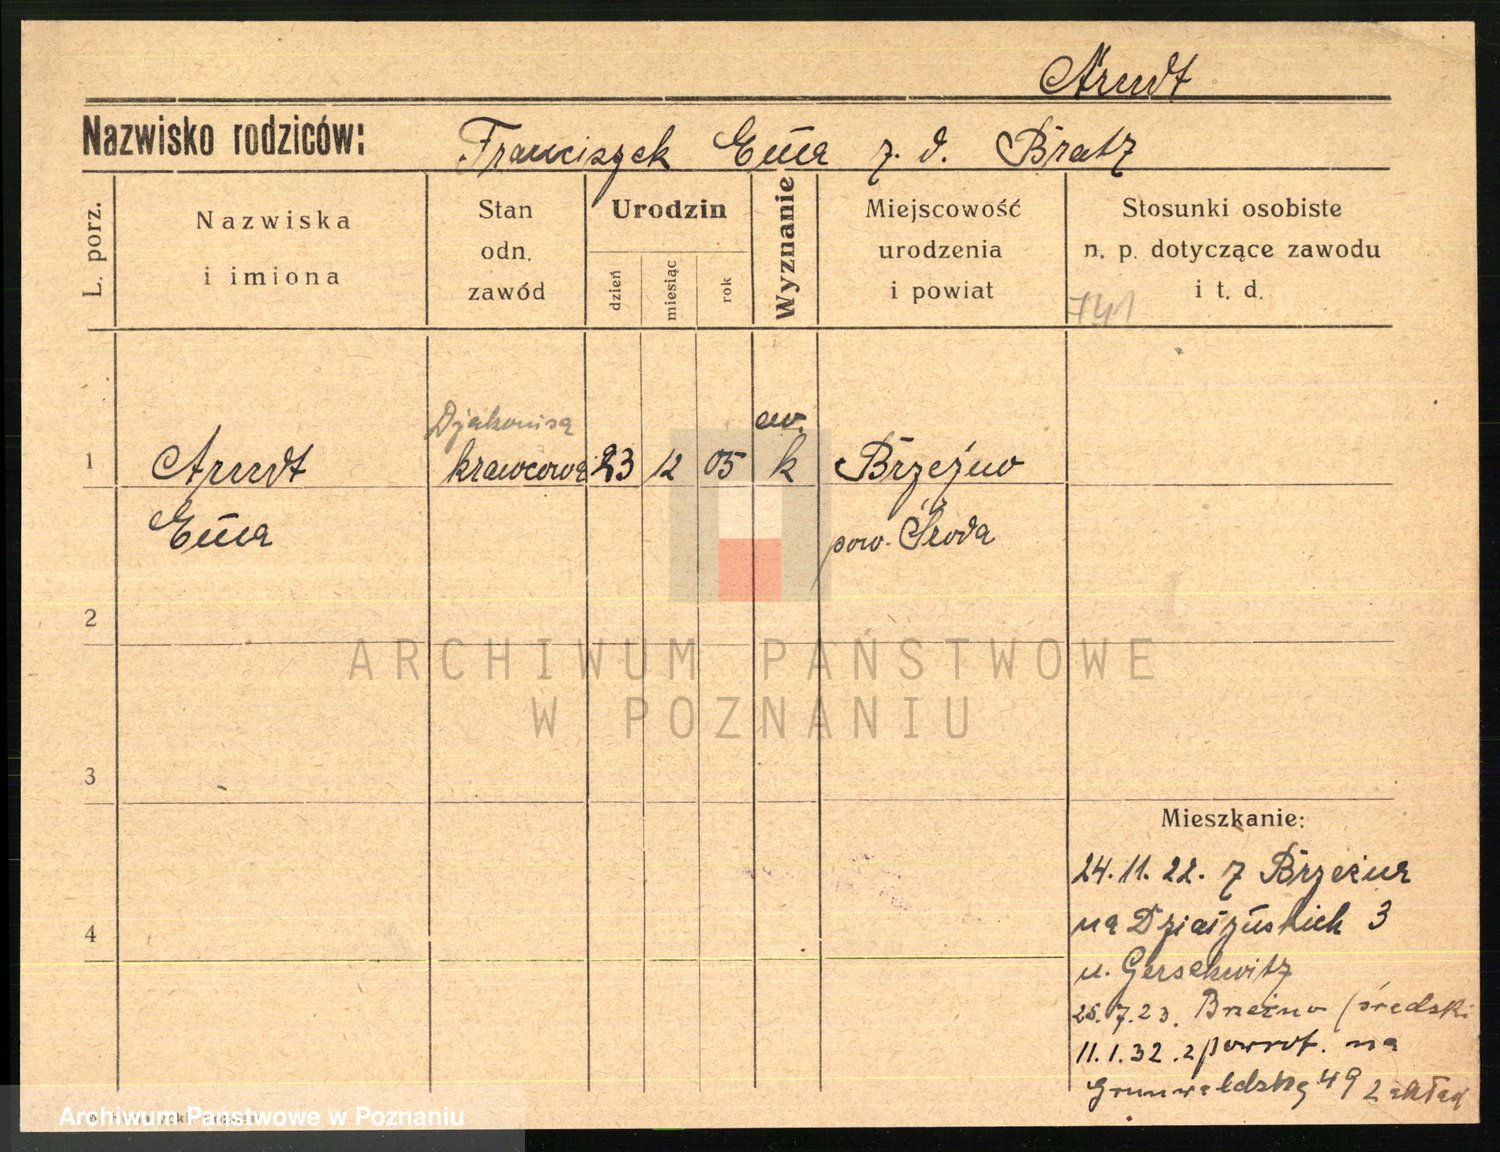 Arndt
Nazwisko rodziców: Franciszek Ema z. d. Bratz
L. porz.
Nazwiska
i imiona
Stan
odn.
zawód
Urodzin
dzień
miesiąc
rok
Wyznanie
Miejscowość
urodzenia
i powiat
Stosunki osobiste
n. p. dotyczące zawodu
i t. d.
741
Djakonisa ew.
1 Arndt krawcowa 23 12 05 k Brzeźno
Ema pow. Środa
2
ARCHIWUM PAŃSTWOWE
W POZNANIU
3
Mieszkanie:
24.11.22. z Brzeźna
4 na Działyńskich 3
u. Gerschwitz
25.7.23. Brzeźno (średski
11.1.32. z powrot. na
Grunwaldzką 49 Zakład
Archiwum Państwowe w Poznaniu